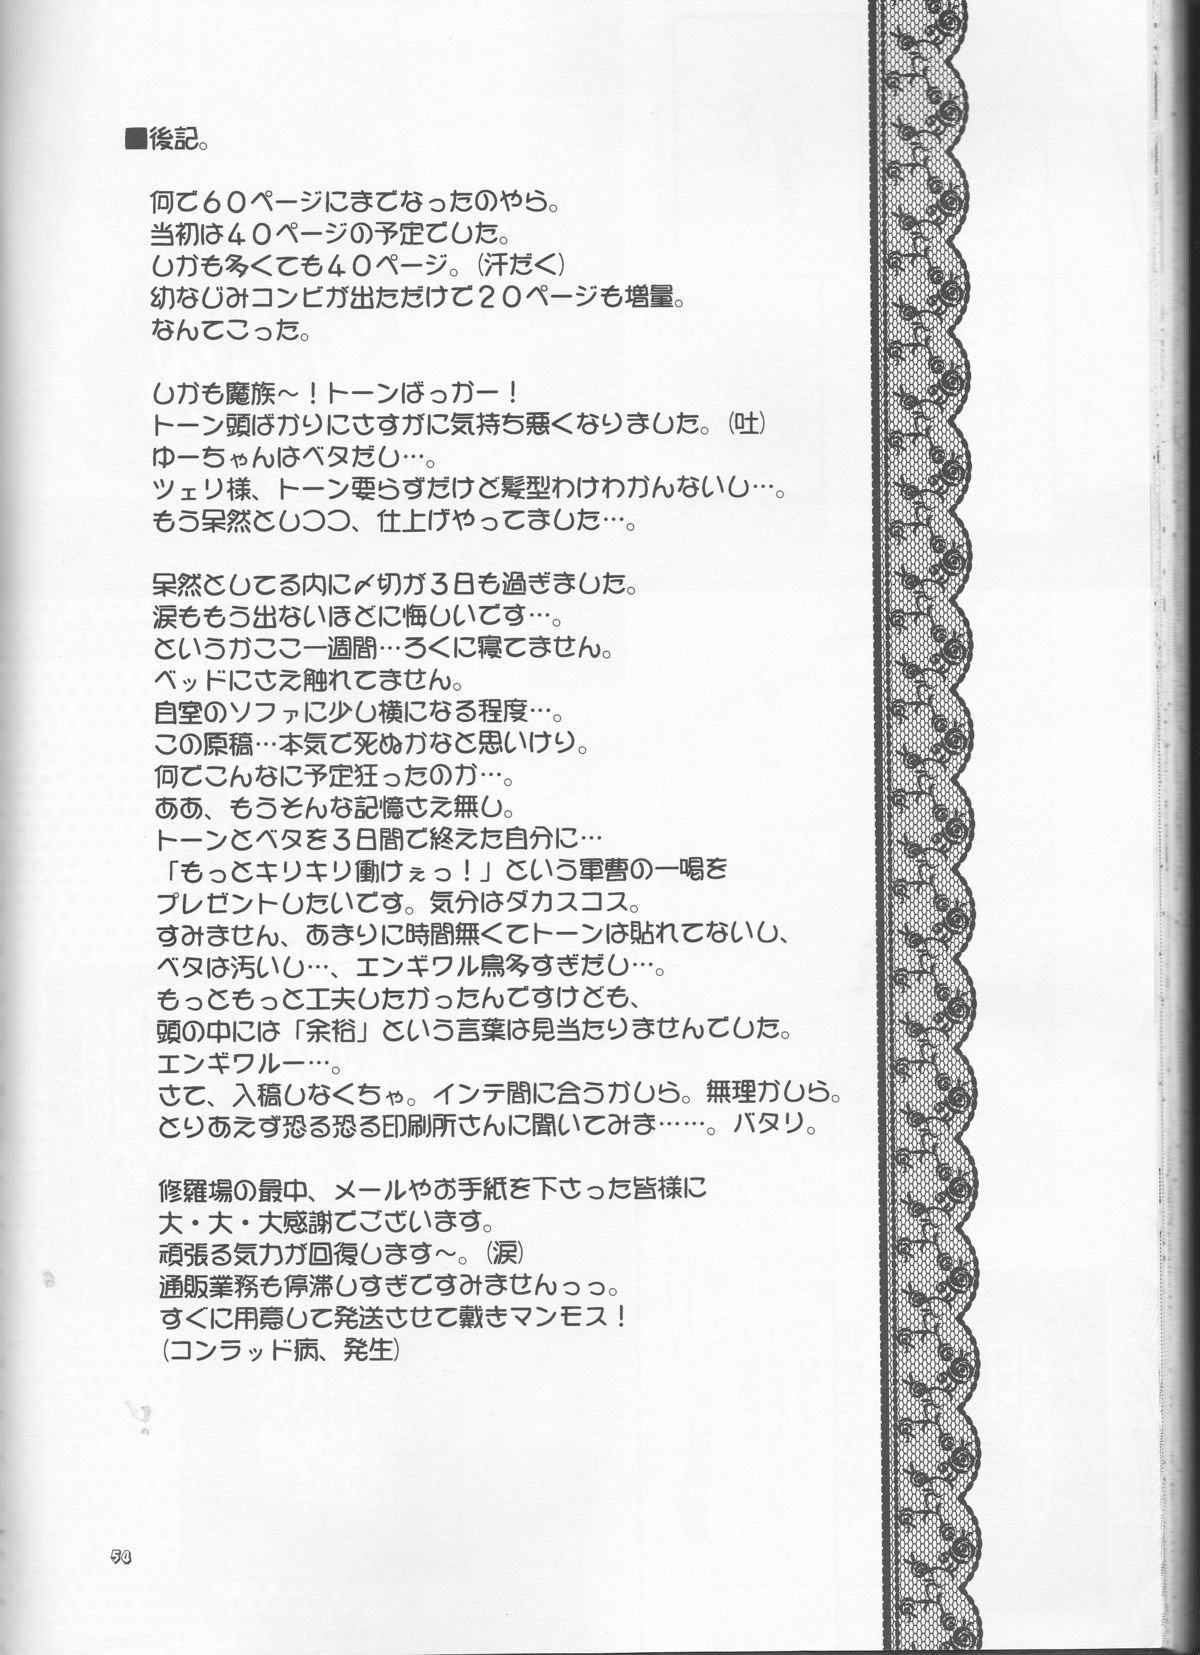 ■後記。
何で６０ページにまでなったのやら。
当初は４０ページの予定でした。
しかも多くても４０ページ。（汗だく）
幼なじみコンビが出ただけで２０ページも増量。
なんてこった。
しかも魔族～！トーンばっかー！
トーン頭ばかりにさすがに気持ち悪くなりました。（吐）
ゆーちゃんはベタだし…。
ツェリ様、トーン要らずだけど髪型わけわかんないし…。
もう呆然としつつ、仕上げやってました…。
呆然としてる内に〆切が３日も過ぎました。
涙ももう出ないほどに悔しいです…。
というかここ一週間…ろくに寝てません。
ベッドにさえ触れてません。
自室のソファに少し横になる程度…。
この原稿…本気で死ぬかなと思いけり。
何でこんなに予定狂ったのか…。
ああ、もうそんな記憶さえ無し。
トーンとベタを３日間で終えた自分に…
「もっとキリキリ働けぇっ！」という軍曹の一喝を
プレゼントしたいです。気分はダカスコス。
すみません、あまりに時間無くてトーンは貼れてないし、
ベタは汚いし…、エンギワル鳥多すぎだし…。
もっともっと工夫したかったんですけども、
頭の中には「余裕」という言葉は見当たりませんでした。
エンギワルー…。
さて、入稿しなくちゃ。インテ間に合うかしら。無理かしら。
とりあえず恐る恐る印刷所さんに聞いてみま……。バタリ。
修羅場の最中、メールやお手紙を下さった皆様に
大・大・大感謝でございます。
頑張る気力が回復します～。（涙）
通販業務も停滞しすぎですみませんっっ。
すぐに用意して発送させて戴きマンモス！
（コンラッド病、発生）
54